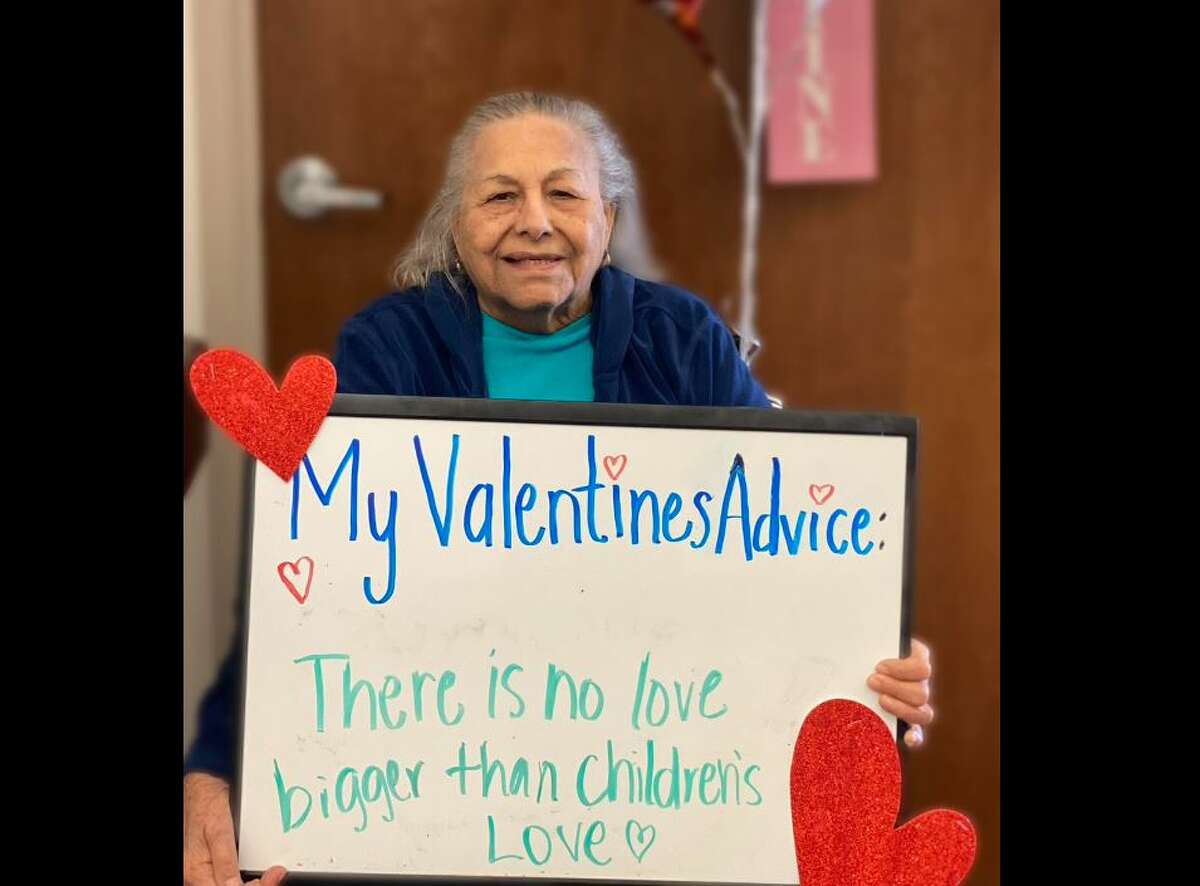 My Valentines Advice:
There is no love
bigger than children's
LOVE